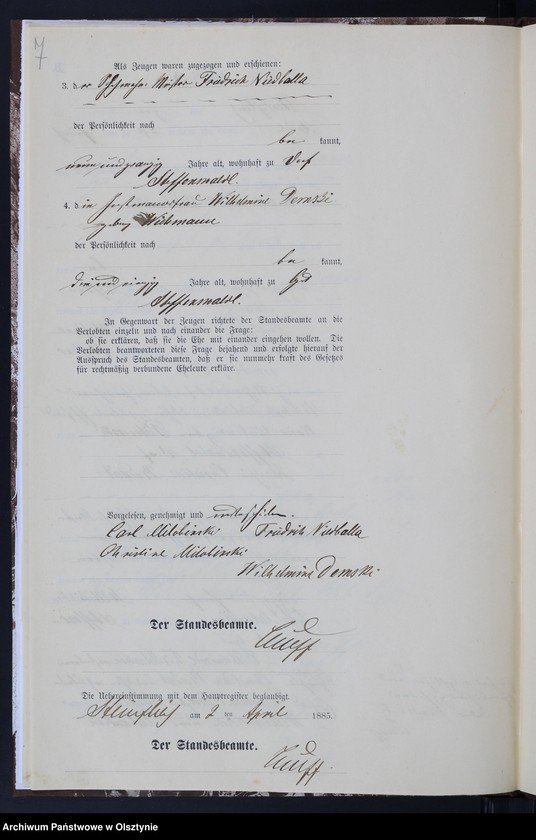 7
Als Zeugen waren zugezogen und erschienen:
3. der Meister Friedrich Niedballa
der Persönlichkeit nach
be kannt,
Jahre alt, wohnhaft zu Dorf
Steffenswalde.
4. die Wilhelmine Demski
Wichmann
der Persönlichkeit nach
be kannt,
Jahre alt, wohnhaft zu Gut
Steffenswalde.
In Gegenwart der Zeugen richtete der Standesbeamte an die
Verlobten einzeln und nach einander die Frage:
ob sie erklären, daß sie die Ehe mit einander eingehen wollen. Die
Verlobten beantworteten diese Frage bejahend und erfolgte hierauf der
Ausspruch des Standesbeamten, daß er sie nunmehr kraft des Gesetzes
für rechtmäßig verbundene Eheleute erkläre.
Vorgelesen, genehmigt und unterschrieben.
Carl Milobinski Friedrich Niedballa
Christine Milobinski
Wilhelmine Demski
Der Standesbeamte.
Die Uebereinstimmung mit dem Hauptregister beglaubigt.
am 2 ten April 1885.
Der Standesbeamte.
Archiwum Państwowe w Olsztynie